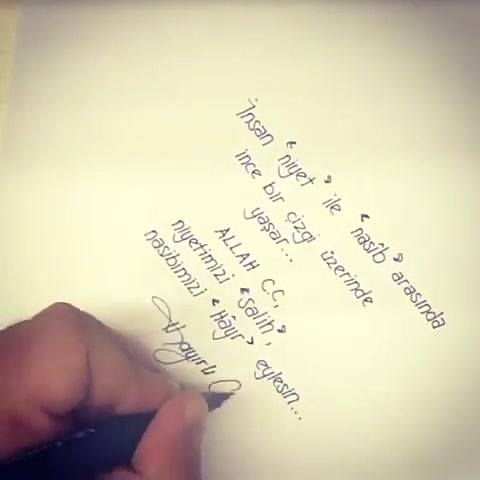 İnsan “niyet” ile “nasîb” arasında
ince bir çizgi üzerinde
yaşar...
ALLAH C.C,
niyetimizi “Salih”,
nasibimizi “Hâyr” eylesin...
Hayırlı C